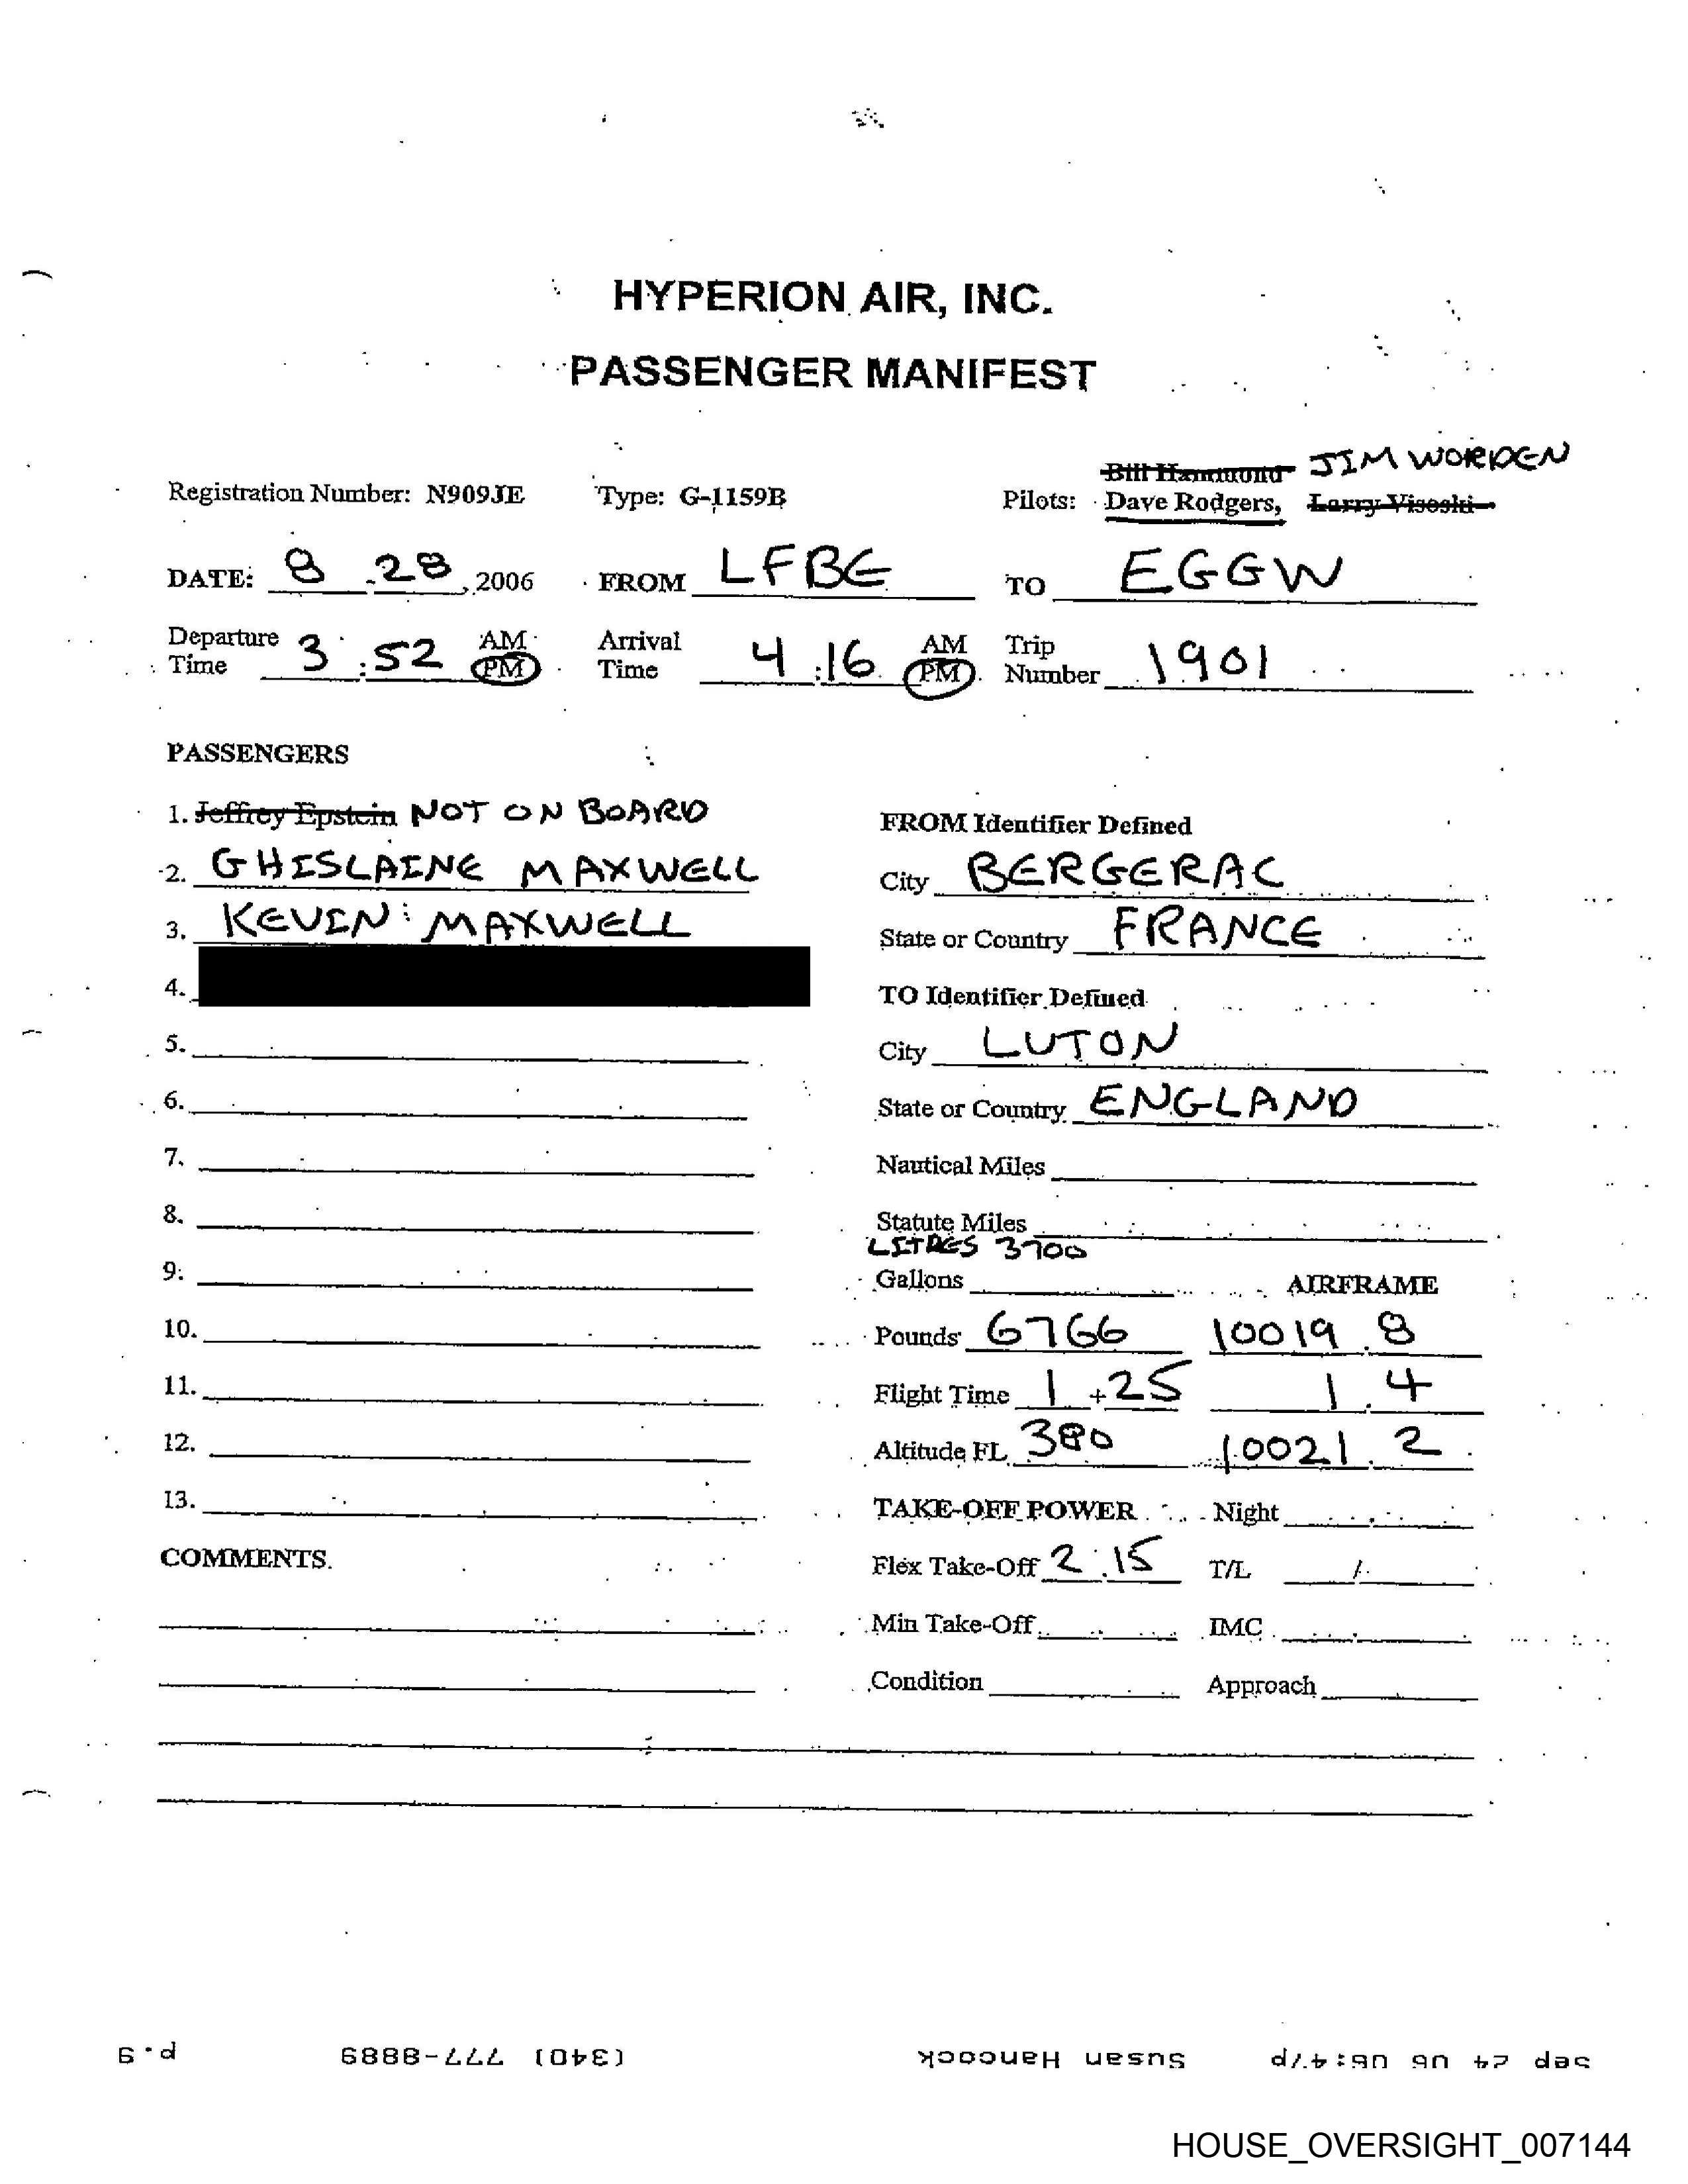 HYPERION AIR, INC.
PASSENGER MANIFEST
Bill Hammond JIM WORDEN
Registration Number: N909JE Type: G-1159B Pilots: Dave Rodgers, Larry Visoski
DATE: 8 .28, 2006 FROM LFBE TO EGGW
Departure Time 3:52 AM PM Arrival Time 4:16 AM PM Trip Number 1901
PASSENGERS
1. Jeffrey Epstein NOT ON BOARD
FROM Identifier Defined
2. GHISLAINE MAXWELL
City BERGERAC
3. KEVIN MAXWELL
State or Country FRANCE
4.
TO Identifier Defined
5.
City LUTON
6.
State or Country ENGLAND
7.
Nautical Miles
8.
Statute Miles
LITRES 3700
9.
Gallons AIRFRAME
10.
Pounds 6766 10019.8
11.
Flight Time 1+25 1.4
12.
Altitude FL 380 10021.2
13.
TAKE-OFF POWER Night
COMMENTS.
Flex Take-Off 2.15 T/L /
Min Take-Off IMC
Condition Approach
Sep 24 06 06:47p Susan Hancock (340) 777-8889 p.9
HOUSE_OVERSIGHT_007144